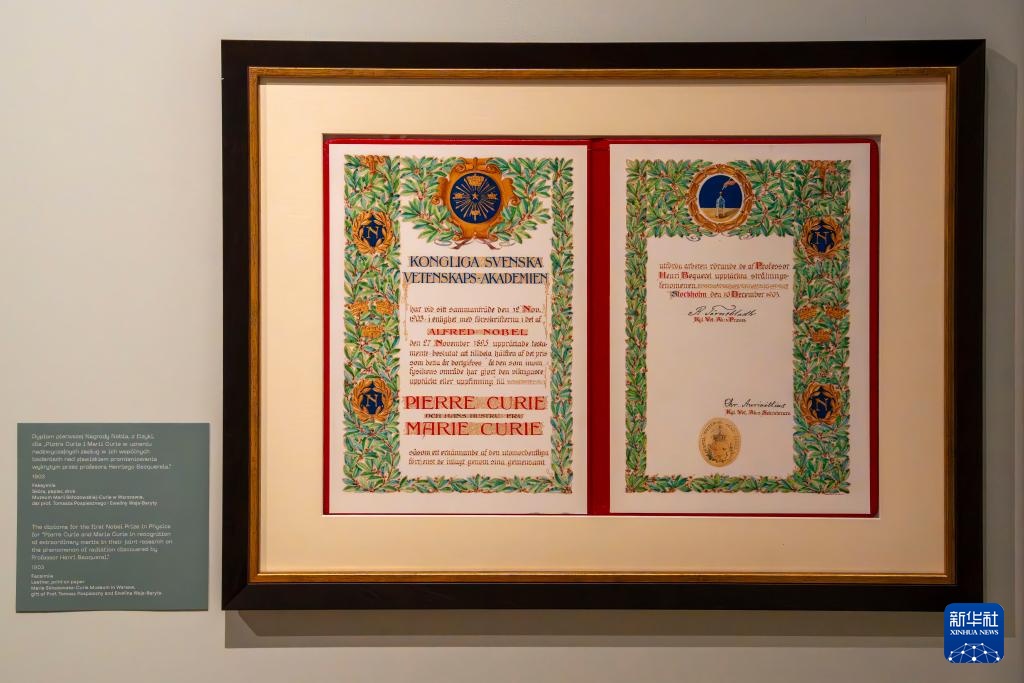 KONGLIGA SVENSKA
VETENSKAPS-AKADEMIEN
har vid sitt sammanträde den 12 Nov.
1903 i enlighet med föreskrifterna i det af
ALFRED NOBEL
den 27 November 1895 upprättade testa-
mente beslutat att tilldela hälften af det pris
som detta år bortgifves åt den som inom
fysikens område har gjort den viktigaste
upptäckt eller uppfinning till
PIERRE CURIE
OCH HANS HUSTRU FRU
MARIE CURIE
såsom ett erkännande af den utomordentliga
förtjenst de inlagt genom sina gemensamt
utförda arbeten rörande de af Professor
Henri Becquerel upptäckta strålnings-
fenomenen.
Stockholm den 10 December 1903.
Kgl. Vet. Ak:s Præses
Kgl. Vet. Ak:s Sekreterare
N
N
N
N
Dyplom pierwszej Nagrody Nobla, z fizyki,
dla „Piotra Curie i Marii Curie w uznaniu
nadzwyczajnych zasług w ich wspólnych
badaniach nad zjawiskiem promieniowania
wykrytym przez profesora Henriego Becquerela."
1903
Faksymile
Skóra, papier, druk
Muzeum Marii Skłodowskiej-Curie w Warszawie,
dar prof. Tomasza Pospiesznego i Eweliny Wajs-Baryły
The diploma for the first Nobel Prize in Physics
for "Pierre Curie and Marie Curie in recognition
of extraordinary merits in their joint research on
the phenomenon of radiation discovered by
Professor Henri Becquerel."
1903
Facsimile
Leather, print on paper
Maria Skłodowska-Curie Museum in Warsaw,
gift of Prof. Tomasz Pospieszny and Ewelina Wajs-Baryła
新华社
XINHUA NEWS